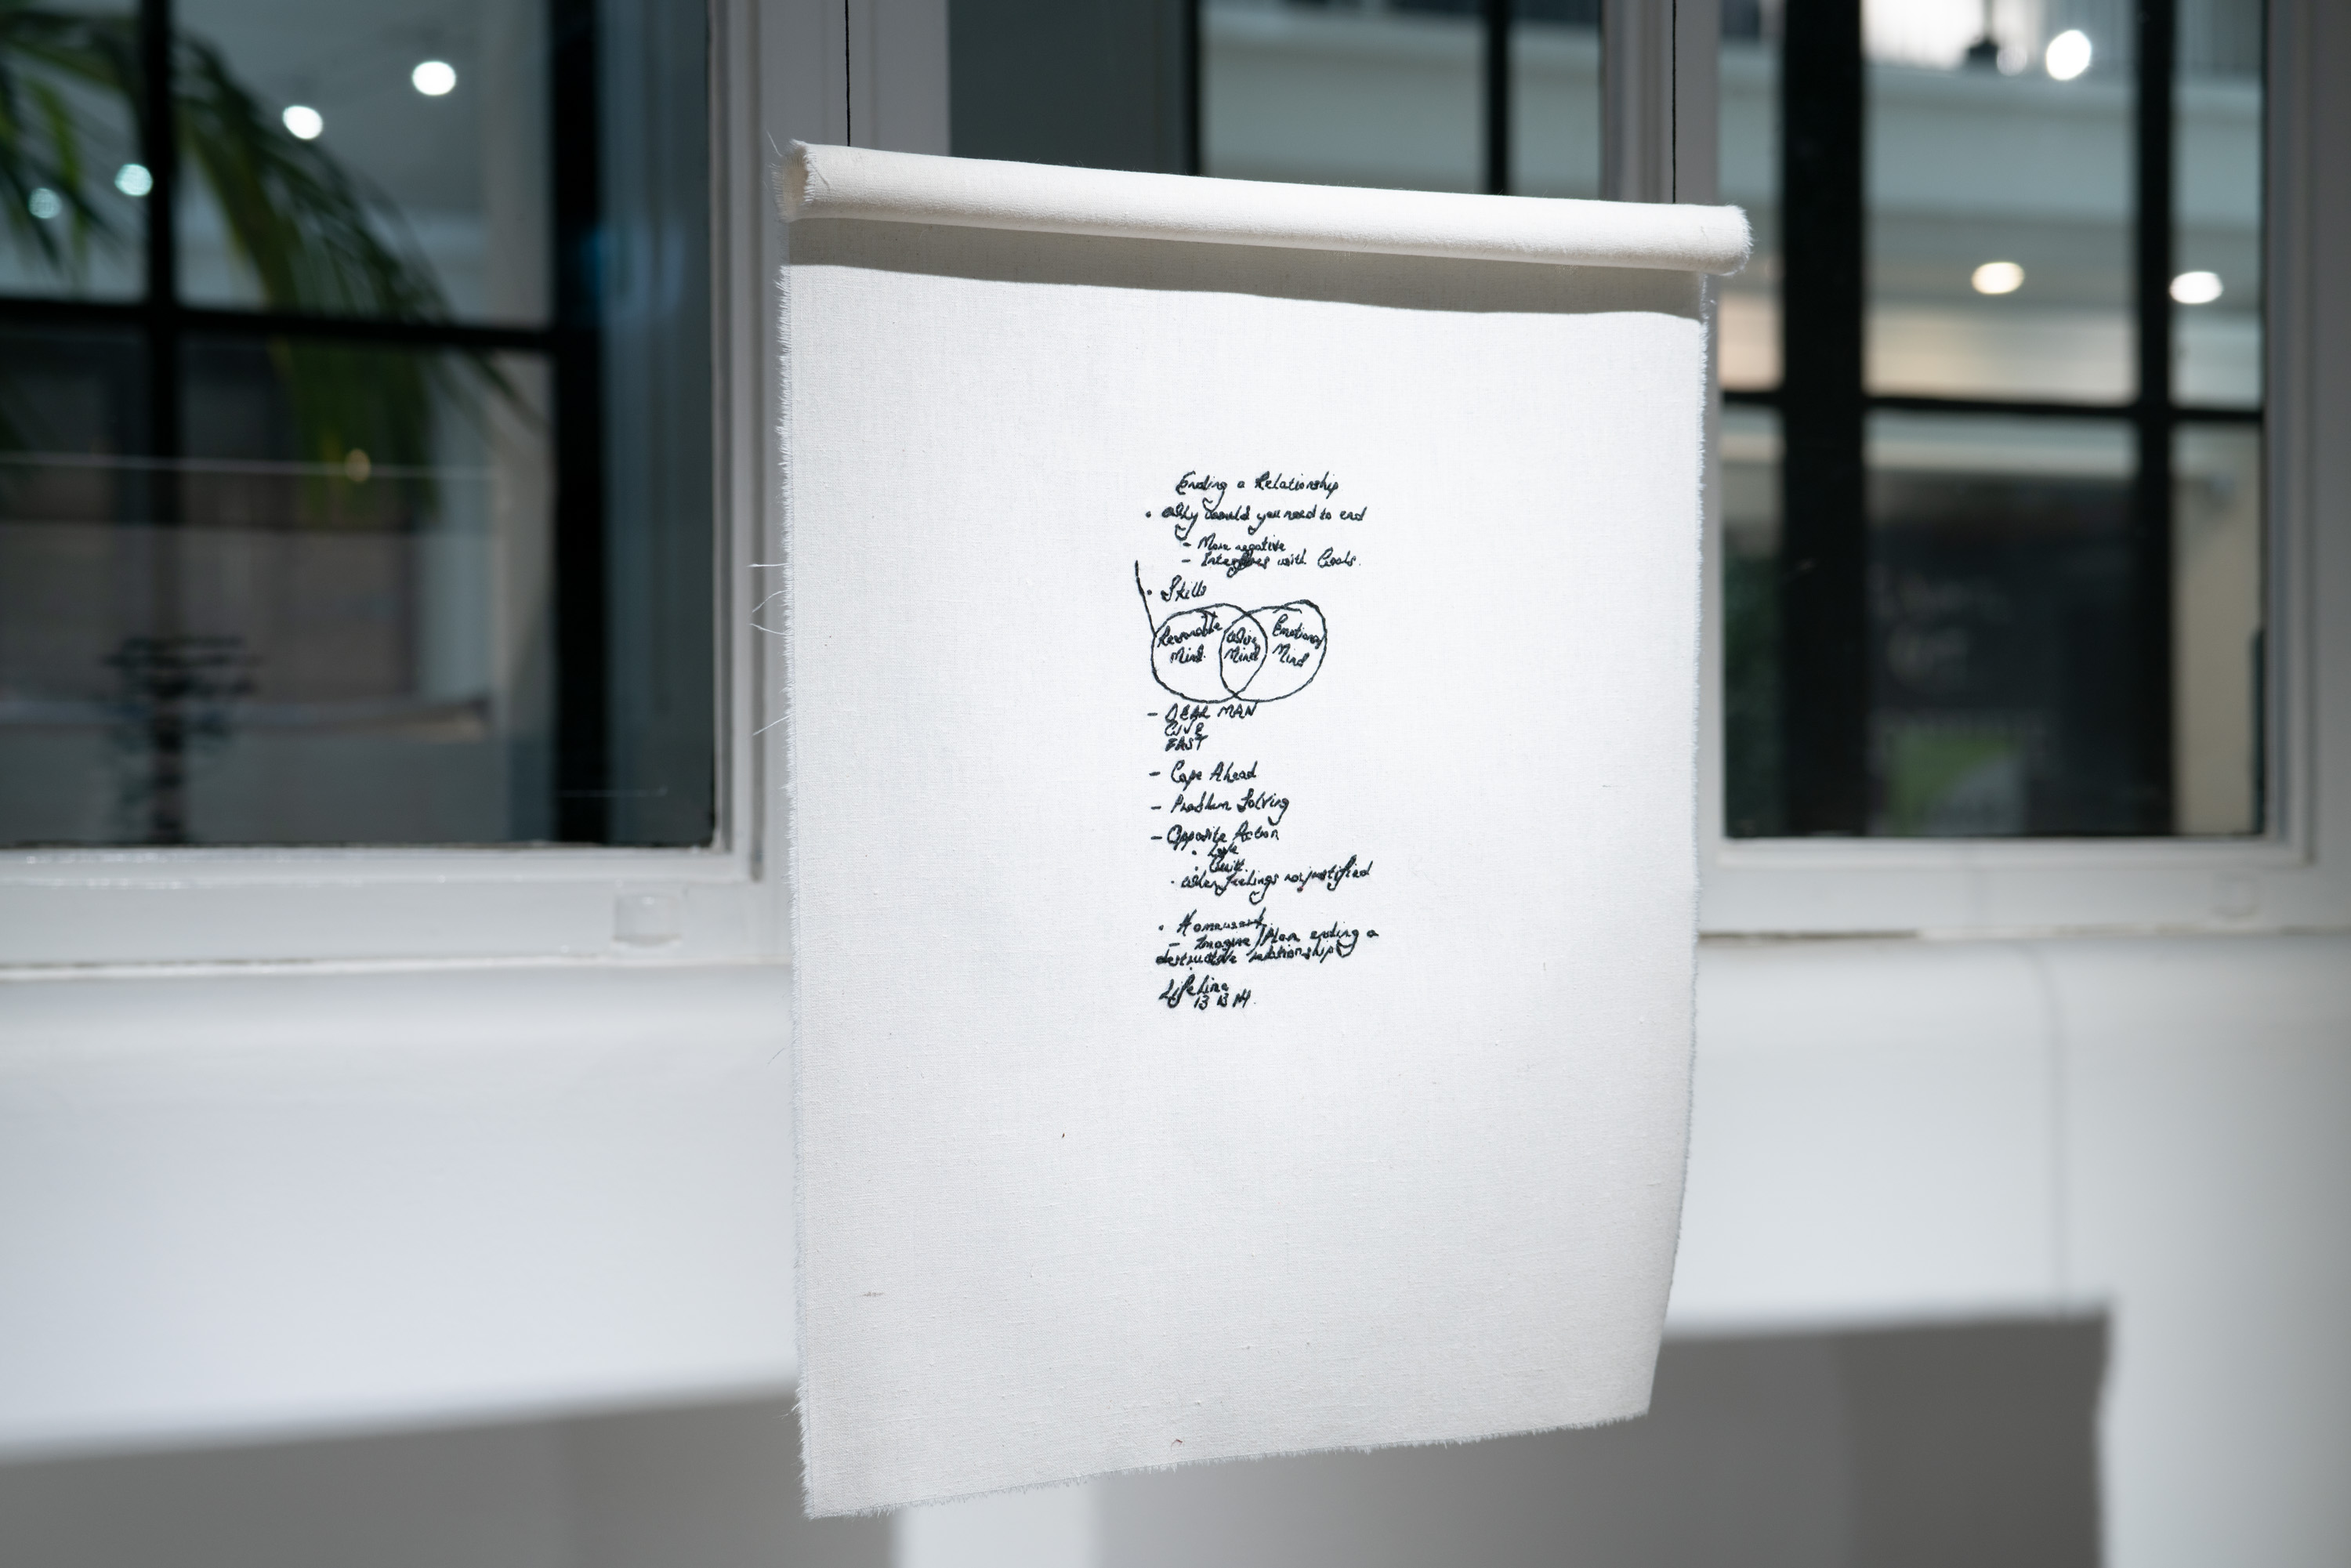 Ending a Relationship
• Why would you need to end
- More negative
- Interferes with Goals.
• Skills
Reasonable Mind.
Wise Mind
Emotional Mind
- DEAR MAN
GIVE
FAST
- Cope Ahead
- Problem Solving
- Opposite Action
• Love
• Guilt
• When feelings not justified
• Homework
- Imagine/Plan ending a
destructive relationship
Lifeline
13 13 14.